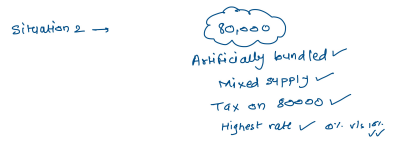 Situation 2 → 80,000
Artificially bundled ✓
Mixed supply ✓
Tax on 80000 ✓
Highest rate ✓ 0% v/s 18% ✓✓